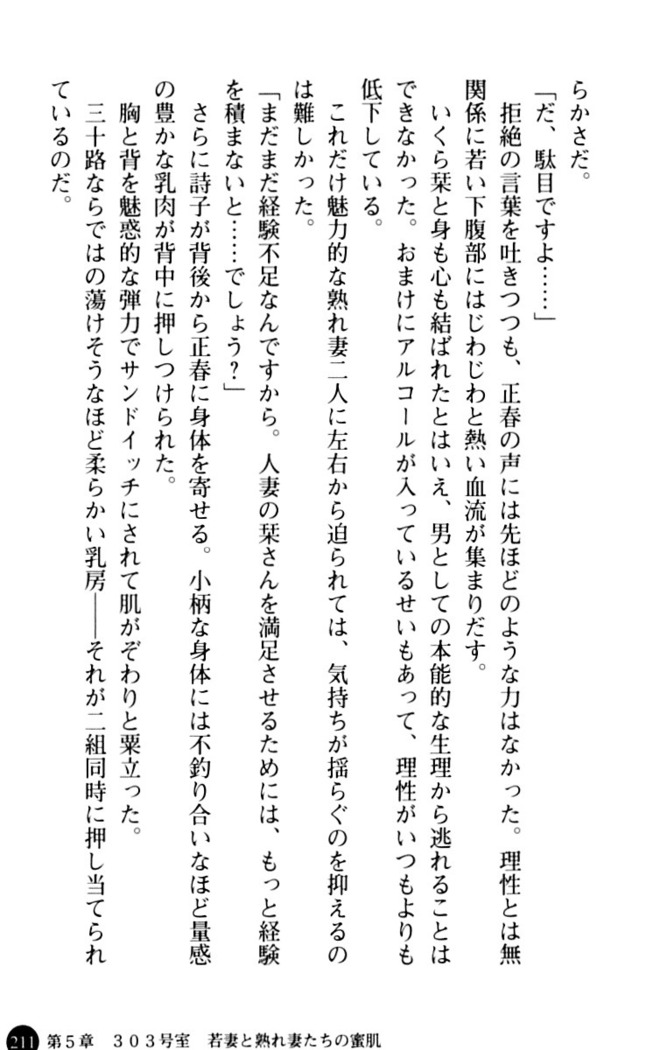 らかさだ。
「だ、駄目ですよ……」
　拒絶の言葉を吐きつつも、正春の声には先ほどのような力はなかった。理性とは無
関係に若い下腹部にはじわじわと熱い血流が集まりだす。
　いくら栞と身も心も結ばれたとはいえ、男としての本能的な生理から逃れることは
できなかった。おまけにアルコールが入っているせいもあって、理性がいつもよりも
低下している。
　これだけ魅力的な熟れ妻二人に左右から迫られては、気持ちが揺らぐのを抑えるの
は難しかった。
「まだまだ経験不足なんですから。人妻の栞さんを満足させるためには、もっと経験
を積まないと……でしょう？」
　さらに詩子が背後から正春に身体を寄せる。小柄な身体には不釣り合いなほど量感
の豊かな乳肉が背中に押しつけられた。
　胸と背を魅惑的な弾力でサンドイッチにされて肌がぞわりと粟立った。
　三十路ならではの蕩けそうなほど柔らかい乳房――それが二組同時に押し当てられ
ているのだ。
211 第５章　３０３号室　若妻と熟れ妻たちの蜜肌